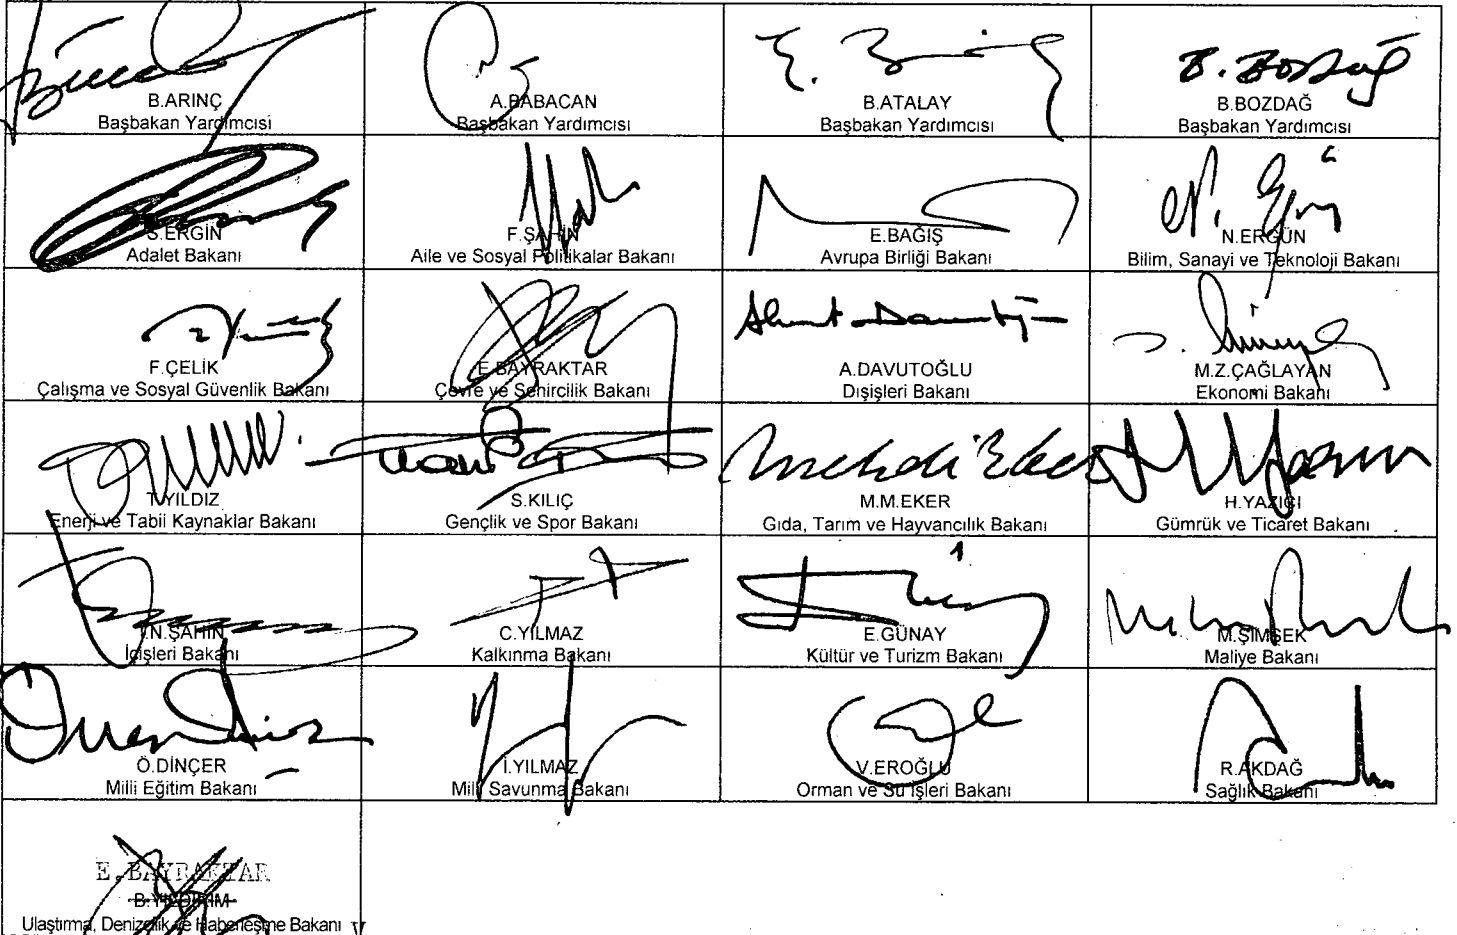 B.ARINÇ
Başbakan Yardımcısı
A.BABACAN
Başbakan Yardımcısı
B.ATALAY
Başbakan Yardımcısı
B. Bozdağ
B.BOZDAĞ
Başbakan Yardımcısı
S.ERGİN
Adalet Bakanı
F.ŞAHİN
Aile ve Sosyal Politikalar Bakanı
E.BAĞIŞ
Avrupa Birliği Bakanı
N.ERGÜN
Bilim, Sanayi ve Teknoloji Bakanı
F.ÇELİK
Çalışma ve Sosyal Güvenlik Bakanı
E.BAYRAKTAR
Çevre ve Şehircilik Bakanı
A.DAVUTOĞLU
Dışişleri Bakanı
M.Z.ÇAĞLAYAN
Ekonomi Bakanı
T.YILDIZ
Enerji ve Tabii Kaynaklar Bakanı
S.KILIÇ
Gençlik ve Spor Bakanı
M.M.EKER
Gıda, Tarım ve Hayvancılık Bakanı
H.YAZICI
Gümrük ve Ticaret Bakanı
İ.N.ŞAHİN
İçişleri Bakanı
C.YILMAZ
Kalkınma Bakanı
E.GÜNAY
Kültür ve Turizm Bakanı
M.ŞİMŞEK
Maliye Bakanı
Ö.DİNÇER
Milli Eğitim Bakanı
İ.YILMAZ
Milli Savunma Bakanı
V.EROĞLU
Orman ve Su İşleri Bakanı
R.AKDAĞ
Sağlık Bakanı
E.BAYRAKTAR
B.YILDIRIM
Ulaştırma, Denizcilik ve Haberleşme Bakanı V